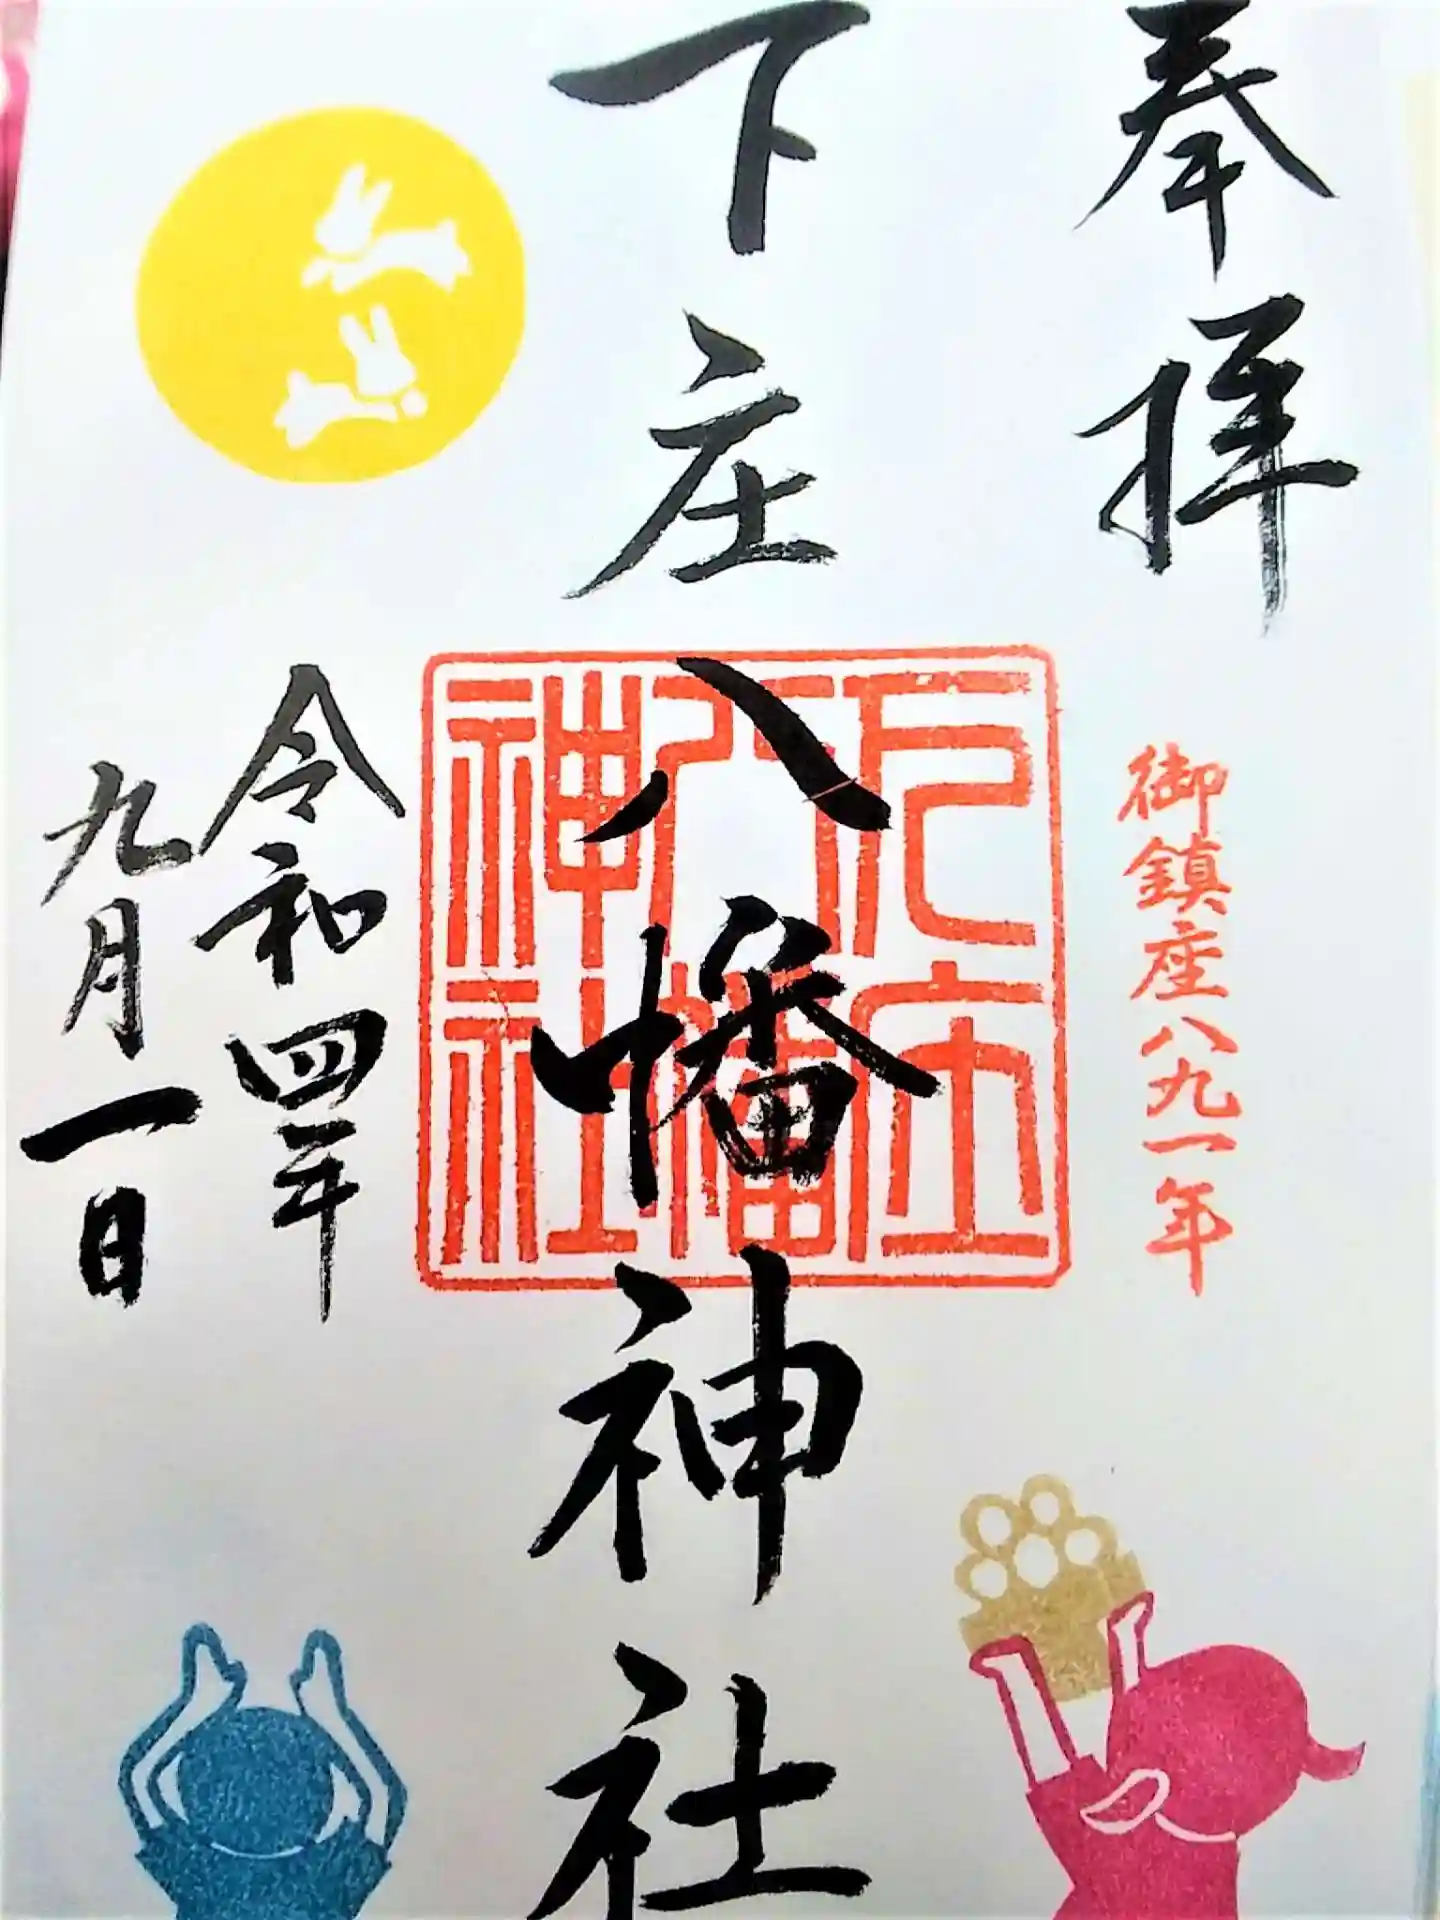 奉拝
御鎮座八九一年
下庄八幡神社
下庄
八幡
神社
令和四年
九月一日